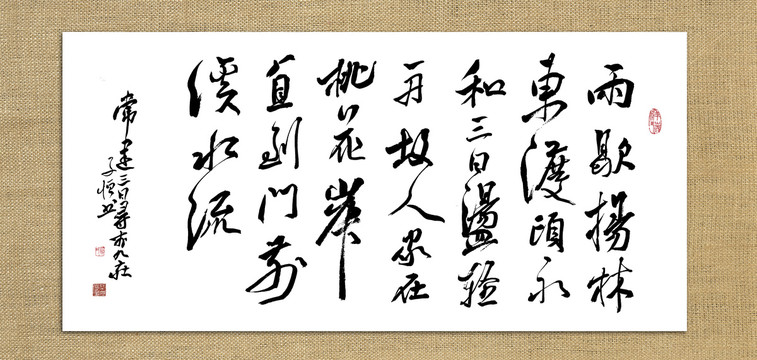 雨歇楊林
東渡頭永
和三日盪輕
舟故人家在
桃花岸
直到門前
溪水流
常建三日尋李九庄
子恒书